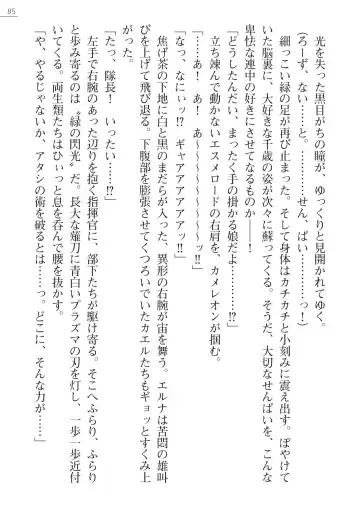 85
光を失った黒目がちの瞳が、ゆっくりと見開かれてゆく。
(ろーず、ない……と……。せん、ぱい……っ！)
細っこい緑の足が再び止まった。そして身体はカチカチと小刻みに震え出す。ぼやけて
いた脳裏に、大好きな千歳の姿が次々に蘇ってくる。そうだ、大切なせんぱいを、こんな
卑怯な連中の好きにさせてなるものか――！
「どうしたんだい、まったく手の掛かる娘だよ………⁉」
立ち竦んで動かないエスメロードの右肩を、カメレオンが掴む。
「……あ！　あ！　あ～～～～～～～ッ‼」
「なっ、なにぃッ⁉　ギャアアアアアッ‼」
焦げ茶の下地に白と黒のまだらが入った、異形の右腕が宙を舞う。エルナは苦悶の雄叫
びを上げて飛び退る。下腹部を膨張させてくつろいでいたカエルたちもギョッとすくみ上
がった。
「たっ、隊長！　いったい……⁉」
左手で右腕のあった辺りを抱く指揮官に、部下たちが駆け寄る。そこへふらり、ふらり
と歩み寄るのは〝緑の閃光〟だ。長大な薙刀に青白いプラズマの刃を灯し、一歩一歩近付
いてくる。両生類たちはひぃっと息を呑んで腰を抜かす。
「や、やるじゃないか、アタシの術を破るとは……っ。どこに、そんな力が……⁉」